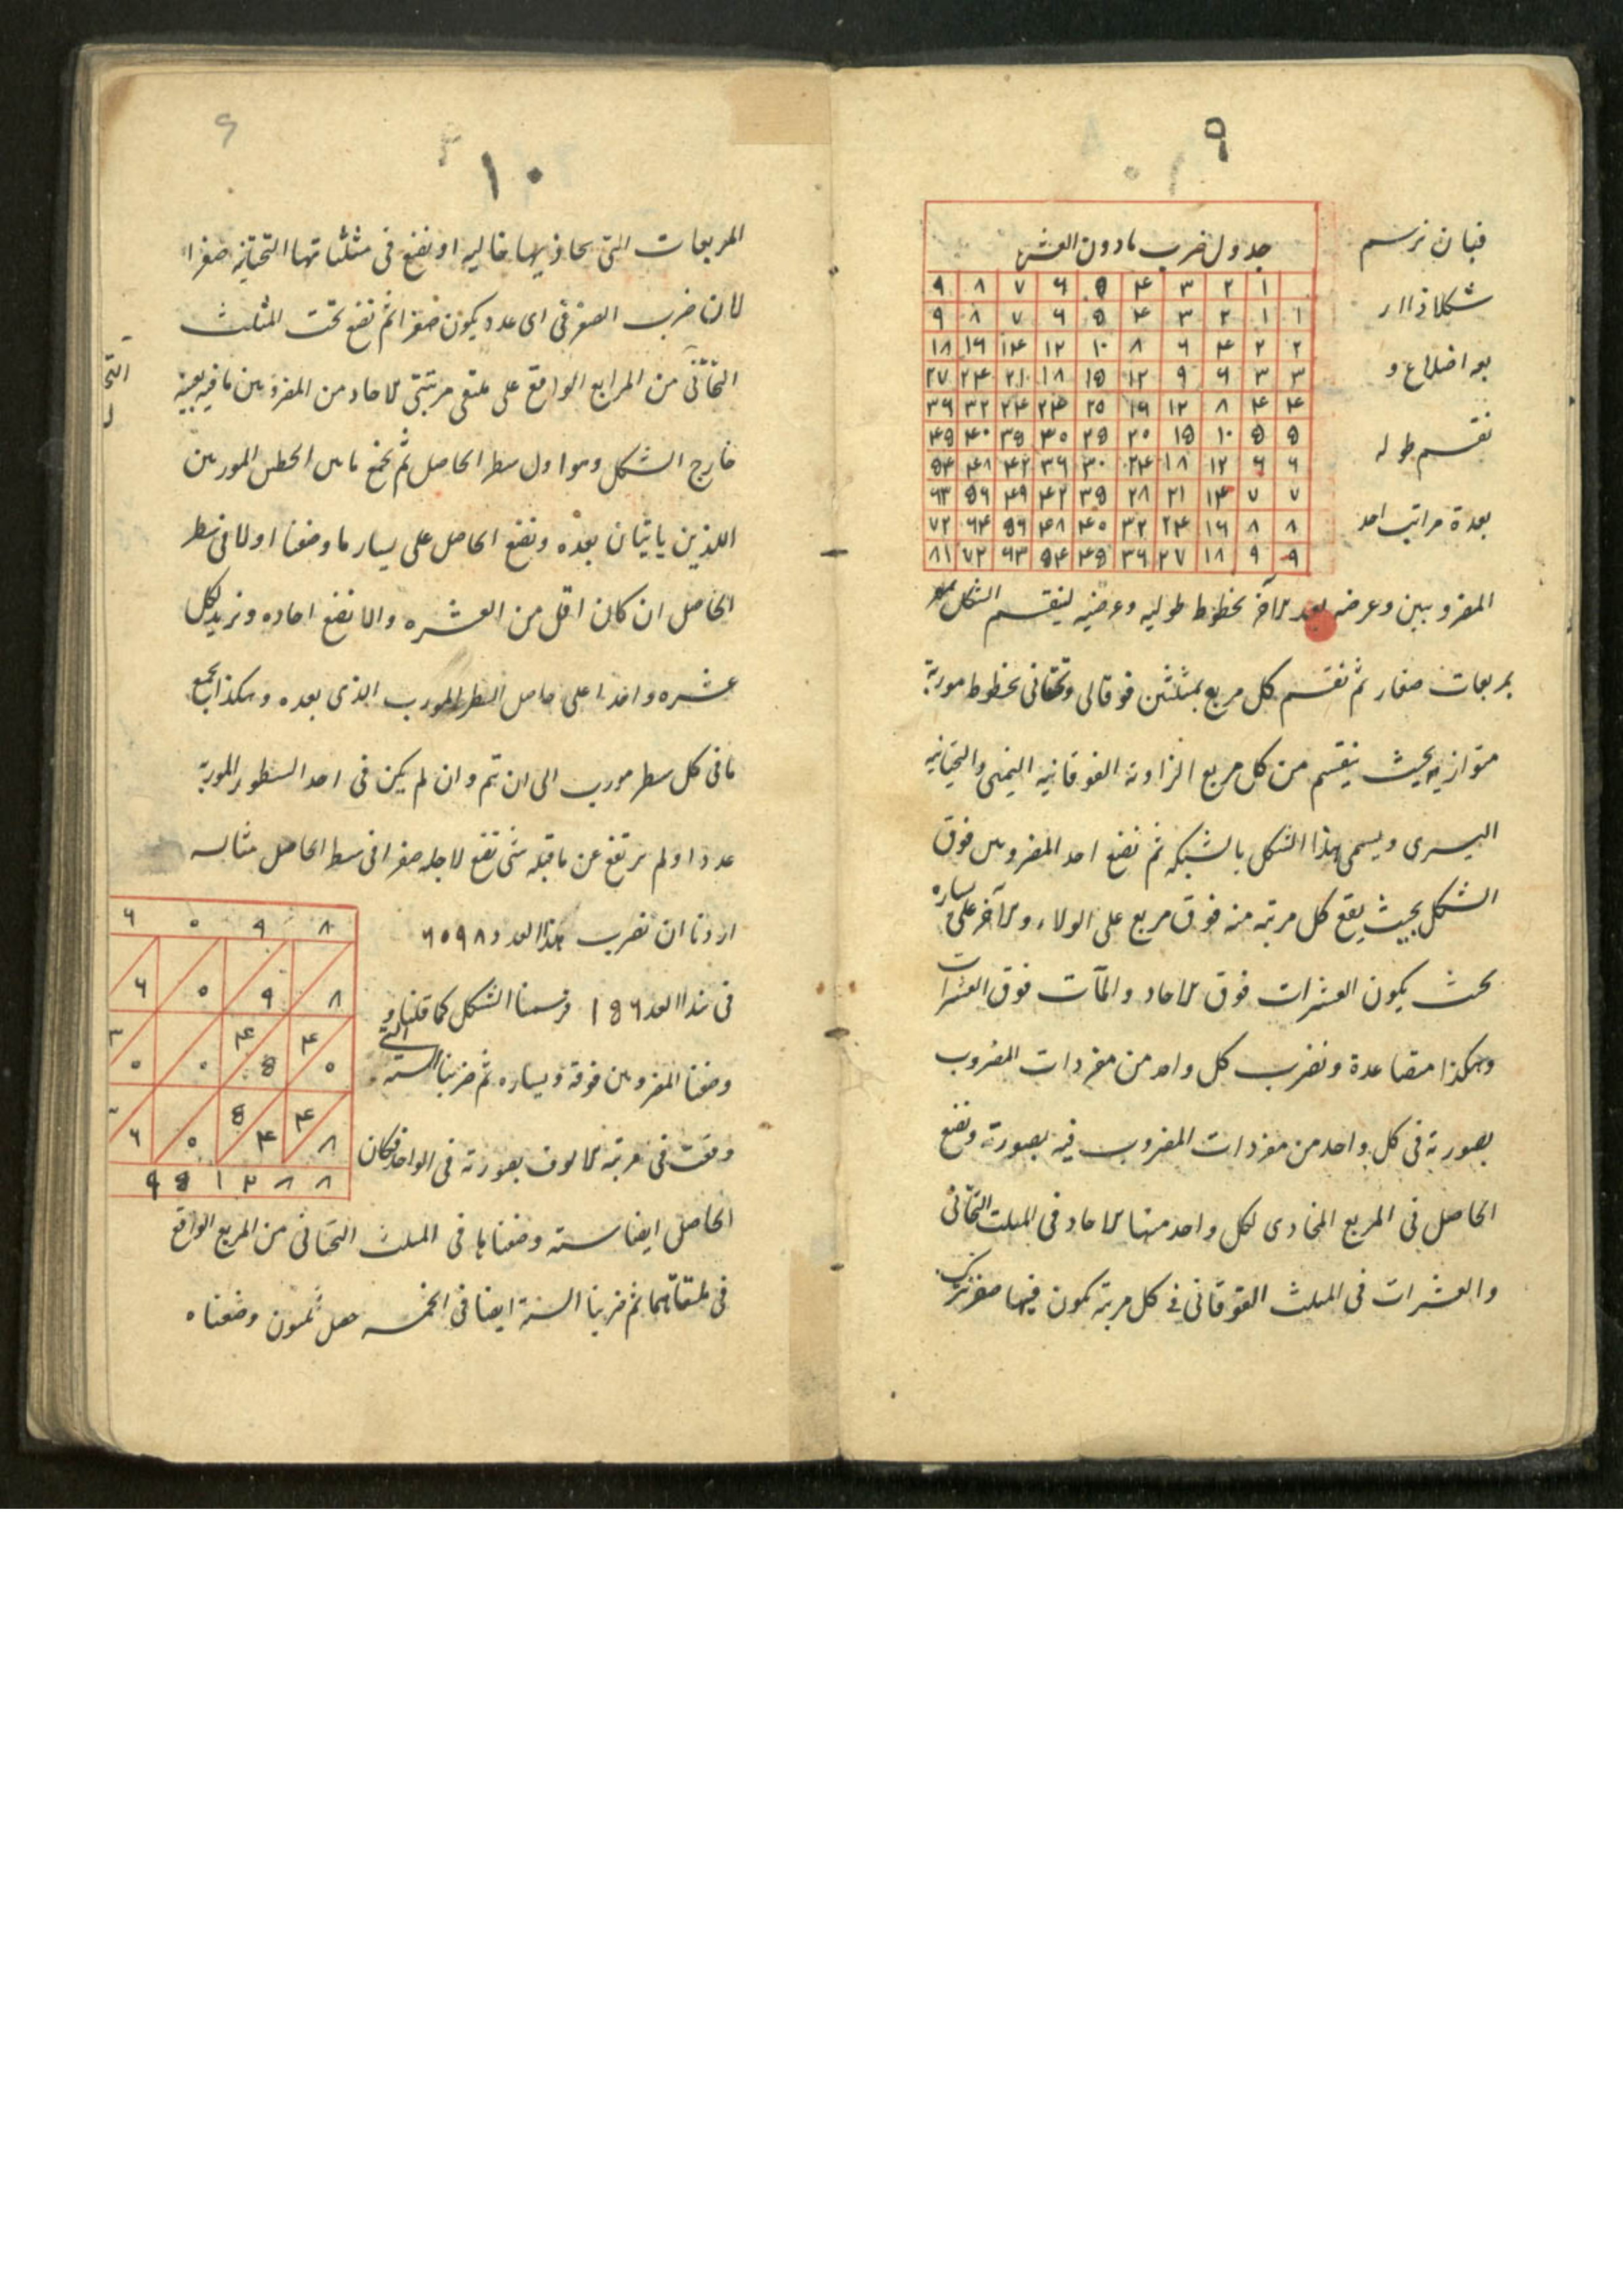 ٩
فبان نرسم
شكلا ذا ار
بعه اضلاع و
نقسم طوله
بعدة مراتب احد
جدول ضرب مادون العشره
١ ٢ ٣ ۴ ٥ ٦ ٧ ٨ ٩
١ ١ ٢ ٣ ۴ ٥ ٦ ٧ ٨ ٩
٢ ٢ ۴ ٦ ٨ ١٠ ١٢ ١۴ ١٦ ١٨
٣ ٣ ٦ ٩ ١٢ ١٥ ١٨ ٢١ ٢۴ ٢٧
۴ ۴ ٨ ١٢ ١٦ ٢٥ ٢۴ ٢۴ ٣٢ ٣٦
٥ ٥ ١٠ ١٥ ٢٠ ٢٥ ٣٠ ٣٥ ۴٠ ۴٥
٦ ٦ ١٢ ١٨ ٢۴ ٣٠ ٣٦ ۴٢ ۴٨ ٥۴
٧ ٧ ١۴ ٢١ ٢٨ ٣٥ ۴٢ ۴٩ ٥٦ ٦٣
٨ ٨ ١٦ ٢۴ ٣٢ ۴٠ ۴٨ ٥٦ ٦۴ ٧٢
٩ ٩ ١٨ ٢٧ ٣٦ ۴٥ ٥۴ ٦٣ ٧٢ ٨١
المضروبين وعرضه بعدد الآخر بخطوط طوليه وعرضيه لينقسم الشكل
بمربعات صغار ثم نقسم كل مربع بمثلثين فوقانى وتحتانى بخطوط موربة
متوازيه بحيث ينقسم من كل مربع الزاوية الفوقانيه اليمنى والتحتانيه
اليسرى ويسمى هذا الشكل بالشبكه ثم نضع احد المضروبين فوق
الشكل بحيث يقع كل مرتبه منه فوق مربع على الولاء والآخر على يساره
بحيث يكون العشرات فوق الاحاد والمآت فوق العشرات
وهكذا متصاعدة ونضرب كل واحد من مفردات المضروب
بصورته فى كل واحد من مفردات المضروب فيه بصورته ونضع
الحاصل فى المربع المحاذى لكل واحد منهما الاحاد فى المثلث التحتانى
والعشرات فى المثلث الفوقانى فى كل مرتبه تكون فيها صفر نترك
١٠
المربعات التى يحاذيها خاليه او نضع فى مثلثاتها التحتانيه صفرا
لان ضرب الصفر فى اى عدد يكون صفرا ثم نضع تحت المثلث
التحتانى من المرابع الواقع على ملتقى مرتبتى الاحاد من المضروبين مافيه بعينه
خارج الشكل وهو اول سطر الحاصل ثم نجمع مابين الخطين الموربين
اللذين ياتيان بعده ونضع الحاصل على يسار ما وضعنا اولا فى سطر
الحاصل ان كان اقل من العشره والا نضع احاده ونزيد لكل
عشره واحدا على حاصل السطر المورب الذى بعده وهكذا يجمع
مافى كل سطر مورب الى ان تم وان لم يكن فى احد السطور الموربة
عددا ولم يرتفع عن ماقبله شئ نضع لاجله صفرا فى سطر الحاصل مثاله
اردنا ان نضرب هذا العدد ٦٠٩٨
فى هذا العدد ١٥٦ فرسمنا الشكل كما قلنا و
وضعنا المضروبين فوقه ويساره ثم ضربنا السته التى
وقعت فى مرتبة الالوف بصورته فى الواحد فكان
٦ ٠ ٩ ٨
٦ ٠ ٩ ٨
٣ ۴ ۴
٠ ٠ ٥ ٠
٥ ۴
٦ ٠ ۴ ٨
٩ ٥ ١ ٢ ٨ ٨
الحاصل ايضا سته وضعناها فى المثلث التحتانى من المربع الواقع
فى ملتقاهما ثم ضربنا الستة ايضا فى الخمسه حصل ثلثون وضعناه